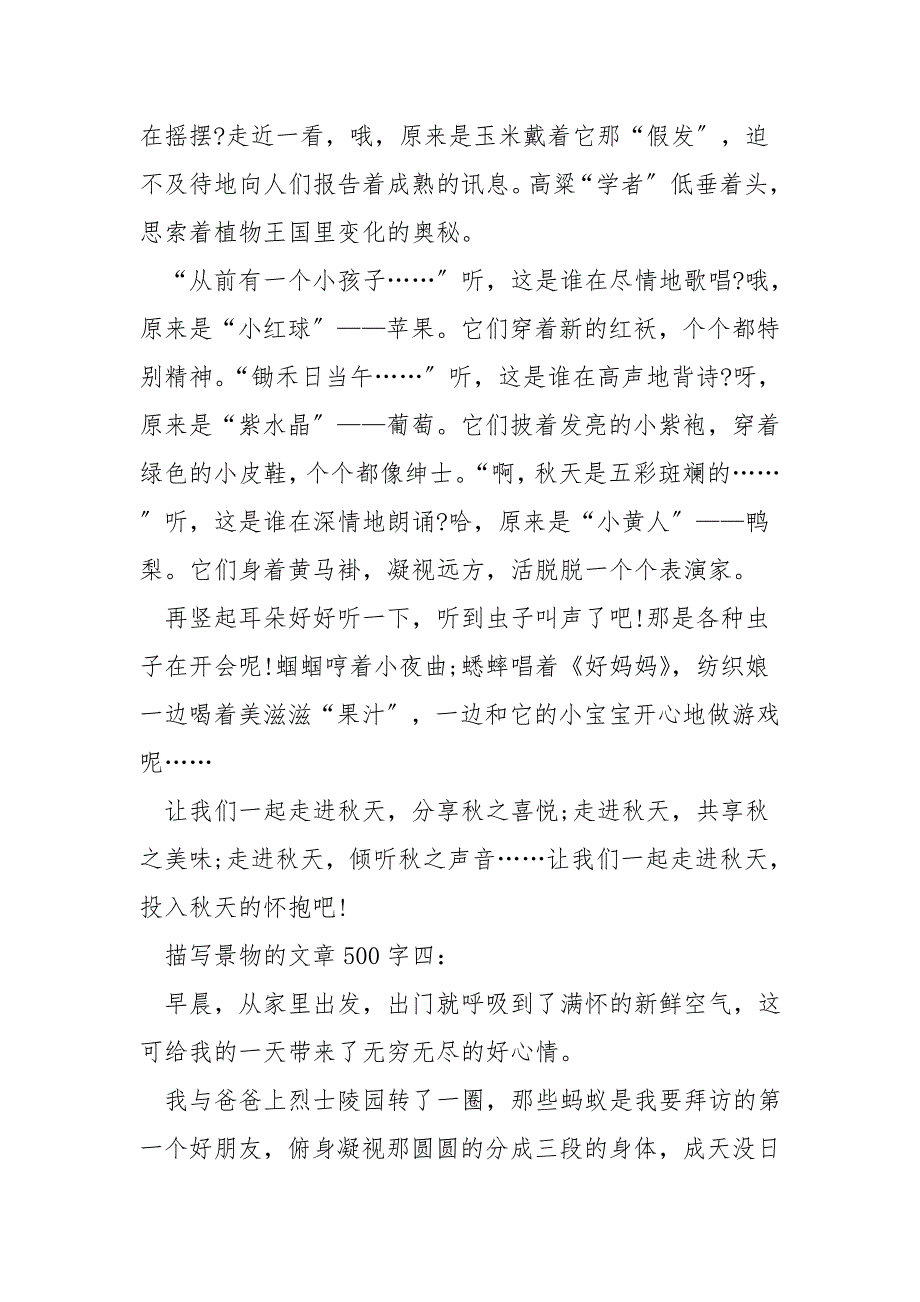 在摇摆?走近一看，哦，原来是玉米戴着它那“假发〞，迫
不及待地向人们报告着成熟的讯息。高粱“学者〞低垂着头，
思索着植物王国里变化的奥秘。
“从前有一个小孩子……〞听，这是谁在尽情地歌唱?哦，
原来是“小红球〞——苹果。它们穿着新的红袄，个个都特
别精神。“锄禾日当午……〞听，这是谁在高声地背诗?呀，
原来是“紫水晶〞——葡萄。它们披着发亮的小紫袍，穿着
绿色的小皮鞋，个个都像绅士。“啊，秋天是五彩斑斓的……
〞听，这是谁在深情地朗诵?哈，原来是“小黄人〞——鸭
梨。它们身着黄马褂，凝视远方，活脱脱一个个表演家。
再竖起耳朵好好听一下，听到虫子叫声了吧!那是各种虫
子在开会呢!蝈蝈哼着小夜曲;蟋蟀唱着《好妈妈》，纺织娘
一边喝着美滋滋“果汁〞，一边和它的小宝宝开心地做游戏
呢……
让我们一起走进秋天，分享秋之喜悦;走进秋天，共享秋
之美味;走进秋天，倾听秋之声音……让我们一起走进秋天，
投入秋天的怀抱吧!
描写景物的文章 500 字四：
早晨，从家里出发，出门就呼吸到了满怀的新鲜空气，这
可给我的一天带来了无穷无尽的好心情。
我与爸爸上烈士陵园转了一圈，那些蚂蚁是我要拜访的第
一个好朋友，俯身凝视那圆圆的分成三段的身体，成天没日